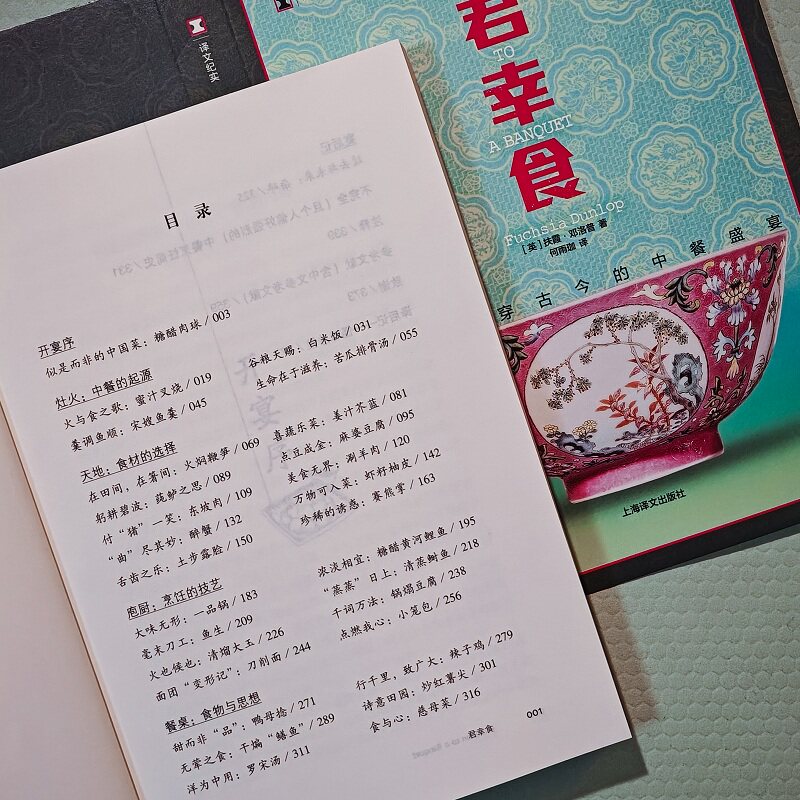 译文纪实
君幸食
TO
A BANQUET
Fuchsia Dunlop
[英]扶霞·邓洛普 著
何雨珈 译
穿古今的中餐盛宴
上海译文出版社
目 录
开宴序
似是而非的中国菜：糖醋肉球 / 003
灶火：中餐的起源
火与食之歌：蜜汁叉烧 / 019
谷粮天赐：白米饭 / 031
羹调鱼顺：宋嫂鱼羹 / 045
生命在于滋养：苦瓜排骨汤 / 055
天地：食材的选择
在田间，在箸间：火焖鞭笋 / 069
喜蔬乐菜：姜汁芥蓝 / 081
躬耕碧波：莼鲈之思 / 089
点豆成金：麻婆豆腐 / 095
付“猪”一笑：东坡肉 / 109
美食无界：涮羊肉 / 120
“曲”尽其妙：醉蟹 / 132
万物可入菜：虾籽柚皮 / 142
舌齿之乐：土步露脸 / 150
珍稀的诱惑：赛熊掌 / 163
庖厨：烹饪的技艺
大味无形：一品锅 / 183
浓淡相宜：糖醋黄河鲤鱼 / 195
毫末刀工：鱼生 / 209
“蒸蒸”日上：清蒸鲥鱼 / 218
火也候也：清熘大玉 / 226
千词万法：锅塌豆腐 / 238
面团“变形记”：刀削面 / 244
点燃我心：小笼包 / 256
餐桌：食物与思想
甜而非“品”：鸭母捻 / 271
行千里，致广大：辣子鸡 / 279
无荤之食：干煸“鳝鱼” / 289
诗意田园：炒红薯尖 / 301
洋为中用：罗宋汤 / 311
食与心：慈母菜 / 316
君幸食
001